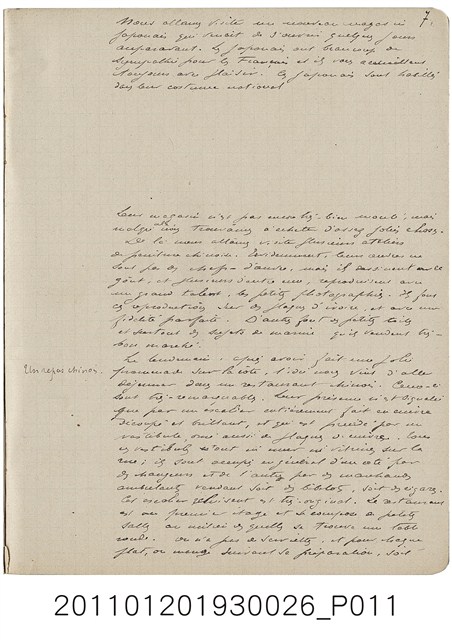 7.
Nous allons visiter un nouveau magasin
Japonais qui venait de s'ouvrir quelques jours
auparavant. Les Japonais ont beaucoup de
sympathie pour les Français et ils vous accueillent
toujours avec plaisir. Les Japonais sont habillés
dans leur costume national.
Leur magasin n'est pas encore très bien monté, mais
malgré cela nous trouvons à acheter d'assez jolies choses.
De là nous allons visiter plusieurs ateliers
de peinture chinoise. Evidemment, leurs œuvres ne
sont pas des chefs-d'œuvre, mais ils dessinent avec
goût, et plusieurs d'entre eux, reproduisent avec
un grand talent, les petites photographies. Ils font
ces reproductions sur des plaques d'ivoire, et avec une
fidélité parfaite. D'autres font des petites toiles
et surtout des sujets de marine qu'ils vendent très-
bon marché.
Un repas chinois.
Le lendemain, après avoir fait une jolie
promenade sur la côte, l'idée nous vint d'aller
déjeuner dans un restaurant chinois. Ceux-ci
sont très-remarquables. Leur présence n'est signalée
que par un escalier entièrement fait en cuivre
découpé et brillant, et qui est précédé par un
vestibule, orné aussi de plaques de cuivre. Tous
ces vestibules n'ont ni mur ni vitrines sur la
rue; ils sont occupés en général d'un côté par
des changeurs et de l'autre par des marchands
ambulants vendant soit des bibelots, soit des cigares.
Ces escaliers sont est très-original. Le restaurant
est au premier étage et se compose de petites
salles au milieu desquelles se trouve une table
ronde. On n'a pas de serviettes, et pour chaque
plat, on mange suivant sa préparation, soit
201101201930026_P011